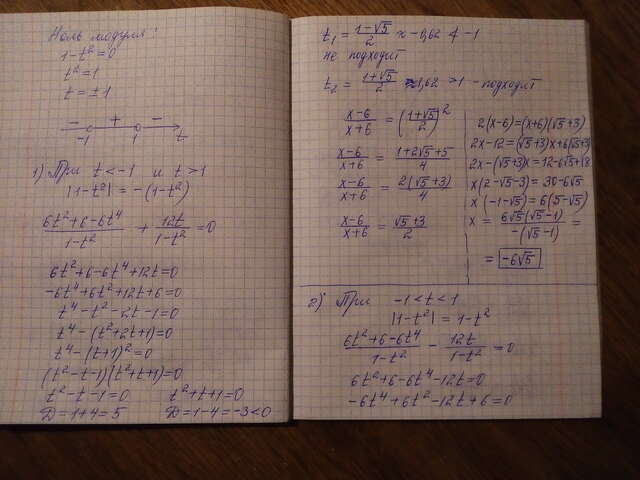 Ноль модуля:
1-t²=0
t²=1
t=±1
- + -
-1 1 t
1) При t<-1 и t>1
|1-t²|=-(1-t²)
(6t²+6-6t⁴)/(1-t²) + 12t/(1-t²) =0
6t²+6-6t⁴+12t=0
-6t⁴+6t²+12t+6=0
t⁴-t²-2t-1=0
t⁴-(t²+2t+1)=0
t⁴-(t+1)²=0
(t²-t-1)(t²+t+1)=0
t²-t-1=0 t²+t+1=0
D=1+4=5 D=1-4=-3<0
t₁=(1-√5)/2 ≈ -0,62 ≮ -1
не подходит
t₂=(1+√5)/2 ≈ 1,62 >1 - подходит
(x-6)/(x+6) = ((1+√5)/2)²
(x-6)/(x+6) = (1+2√5+5)/4
(x-6)/(x+6) = 2(√5+3)/4
(x-6)/(x+6) = (√5+3)/2
2(x-6)=(x+6)(√5+3)
2x-12=(√5+3)x+6(√5+3)
2x-(√5+3)x=12+6√5+18
x(2-√5-3)=30+6√5
x(-1-√5)=6(5+√5)
x = 6√5(√5+1)/-(√5+1) =
= -6√5
2) При -1<t<1
|1-t²|=1-t²
(6t²+6-6t⁴)/(1-t²) - 12t/(1-t²) =0
6t²+6-6t⁴-12t=0
-6t⁴+6t²-12t+6=0